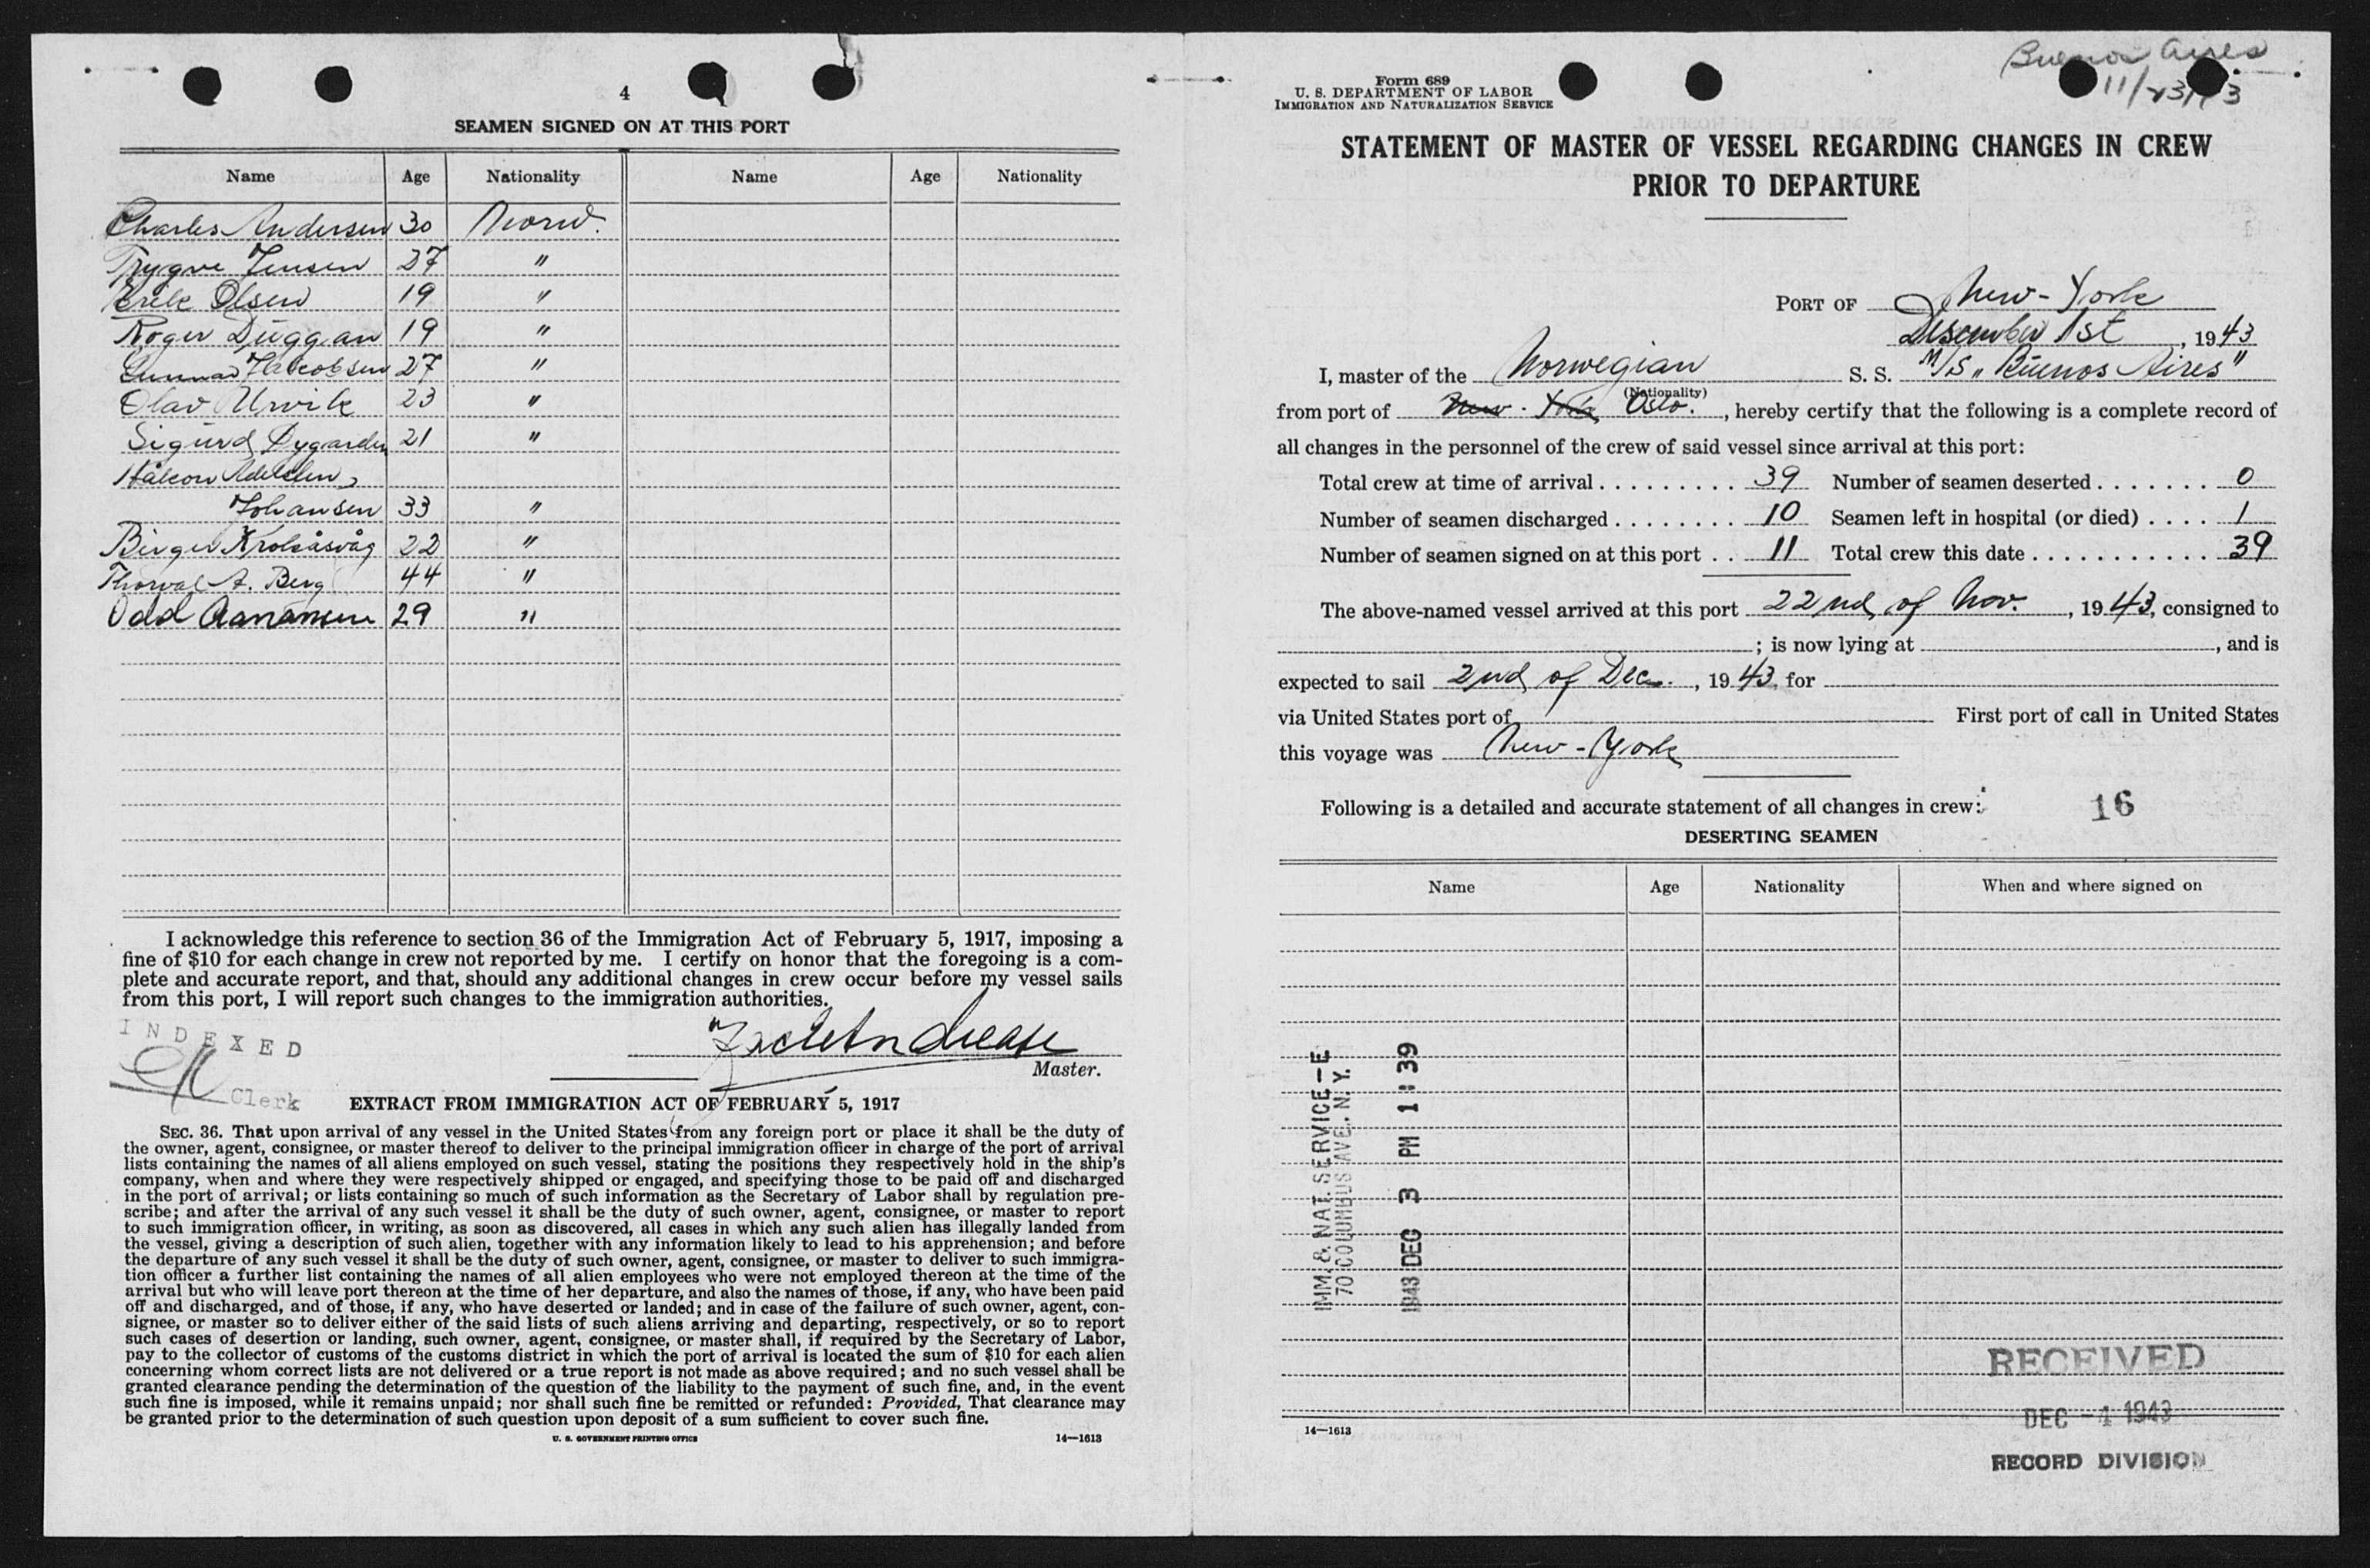 4
SEAMEN SIGNED ON AT THIS PORT
Name Age Nationality Name Age Nationality
Charles Andersen 30 Norw.
Trygve Jensen 27 "
Erik Olsen 19 "
Roger Duggan 19 "
Gunnar Jacobsen 27 "
Olav Urvik 23 "
Sigurd Dygarden 21 "
Håkon Adelsten
Johansen 33 "
Birger Krokåsvåg 22 "
Thorval A. Berg 44 "
Odd Aanansen 29 "
I acknowledge this reference to section 36 of the Immigration Act of February 5, 1917, imposing a
fine of $10 for each change in crew not reported by me. I certify on honor that the foregoing is a com-
plete and accurate report, and that, should any additional changes in crew occur before my vessel sails
from this port, I will report such changes to the immigration authorities.
INDEXED
Master.
Clerk
EXTRACT FROM IMMIGRATION ACT OF FEBRUARY 5, 1917
SEC. 36. That upon arrival of any vessel in the United States from any foreign port or place it shall be the duty of
the owner, agent, consignee, or master thereof to deliver to the principal immigration officer in charge of the port of arrival
lists containing the names of all aliens employed on such vessel, stating the positions they respectively hold in the ship's
company, when and where they were respectively shipped or engaged, and specifying those to be paid off and discharged
in the port of arrival; or lists containing so much of such information as the Secretary of Labor shall by regulation pre-
scribe; and after the arrival of any such vessel it shall be the duty of such owner, agent, consignee, or master to report
to such immigration officer, in writing, as soon as discovered, all cases in which any such alien has illegally landed from
the vessel, giving a description of such alien, together with any information likely to lead to his apprehension; and before
the departure of any such vessel it shall be the duty of such owner, agent, consignee, or master to deliver to such immigra-
tion officer a further list containing the names of all alien employees who were not employed thereon at the time of the
arrival but who will leave port thereon at the time of her departure, and also the names of those, if any, who have been paid
off and discharged, and of those, if any, who have deserted or landed; and in case of the failure of such owner, agent, con-
signee, or master so to deliver either of the said lists of such aliens arriving and departing, respectively, or so to report
such cases of desertion or landing, such owner, agent, consignee, or master shall, if required by the Secretary of Labor,
pay to the collector of customs of the customs district in which the port of arrival is located the sum of $10 for each alien
concerning whom correct lists are not delivered or a true report is not made as above required; and no such vessel shall be
granted clearance pending the determination of the question of the liability to the payment of such fine, and, in the event
such fine is imposed, while it remains unpaid; nor shall such fine be remitted or refunded: Provided, That clearance may
be granted prior to the determination of such question upon deposit of a sum sufficient to cover such fine.
U. S. GOVERNMENT PRINTING OFFICE 14—1613
Buenos Aires
11/23/43
Form 689
U. S. DEPARTMENT OF LABOR
IMMIGRATION AND NATURALIZATION SERVICE
STATEMENT OF MASTER OF VESSEL REGARDING CHANGES IN CREW
PRIOR TO DEPARTURE
PORT OF New-York
Desember 1st, 1943
I, master of the Norwegian S. S. M/S "Buenos Aires"
(Nationality)
from port of New-York Oslo., hereby certify that the following is a complete record of
all changes in the personnel of the crew of said vessel since arrival at this port:
Total crew at time of arrival . . . . . . . . . 39 Number of seamen deserted . . . . . . . 0
Number of seamen discharged . . . . . . . . 10 Seamen left in hospital (or died) . . . . 1
Number of seamen signed on at this port . . 11 Total crew this date . . . . . . . . . . . 39
The above-named vessel arrived at this port 22nd of Nov., 1943, consigned to
; is now lying at , and is
expected to sail 2nd of Dec., 1943, for
via United States port of First port of call in United States
this voyage was New-York
Following is a detailed and accurate statement of all changes in crew: 16
DESERTING SEAMEN
Name Age Nationality When and where signed on
IMM. & NAT. SERVICE-E
70 COLUMBUS AVE. N. Y.
1943 DEC 3 PM 1:39
RECEIVED
DEC -4 1943
RECORD DIVISION
14—1613